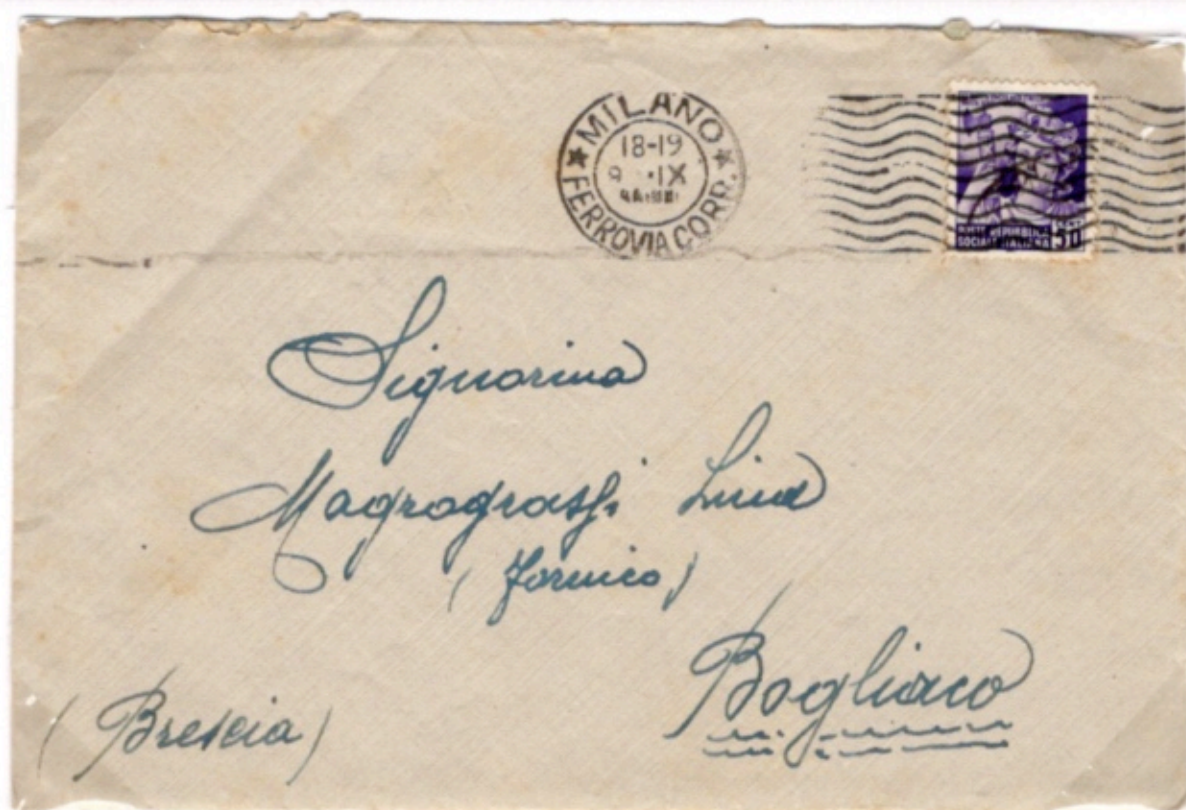 MILANO
18-19
9 · IX
FERROVIA CORR.
POSTE REPUBBLICA
SOCIALE ITALIANA
CENT
50
Signorina
Magrograssi Lina
(Fornico)
Bogliaco
(Brescia)